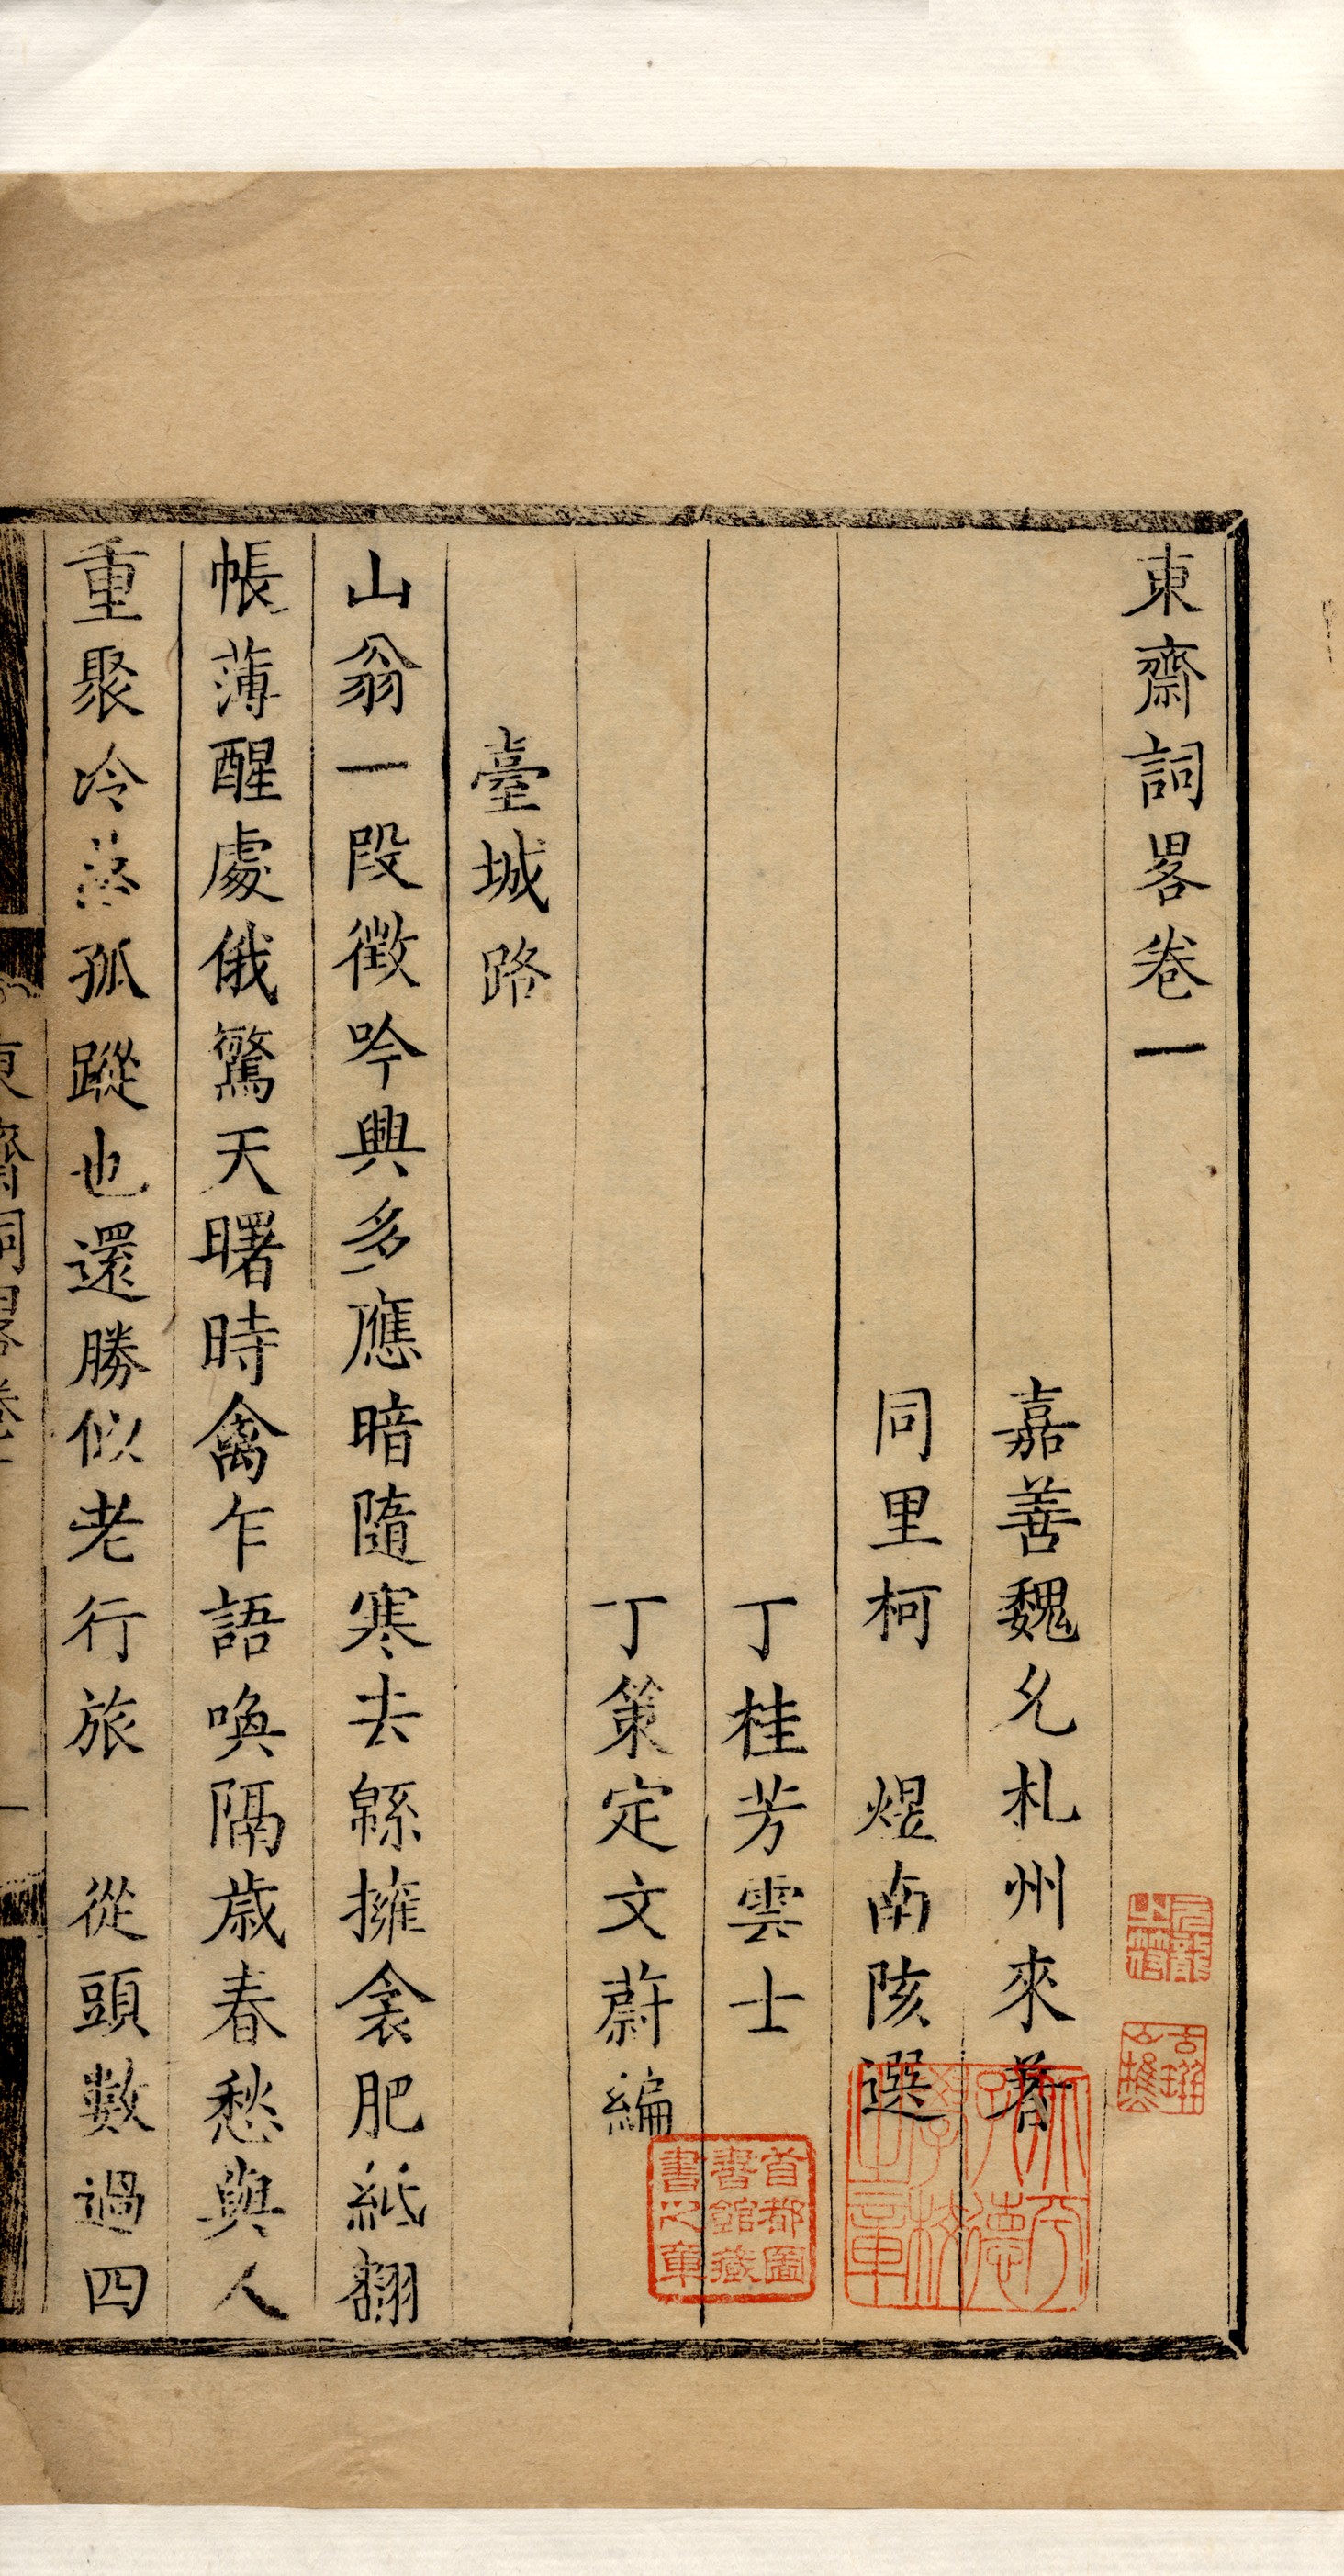 東齋詞畧卷一
嘉善魏允札州來著
同里柯 煜南陔選
丁桂芳雲士
丁策定文蔚編
臺城路
山翁一段徴吟興多應暗隨寒去緜擁衾肥紙翻
帳薄醒處俄驚天曙時禽乍語喚隔歲春愁與人
重聚冷落孤蹤也還勝似老行旅 從頭數過四
東齋詞畧卷一
一
首都圖
書館藏
書之章